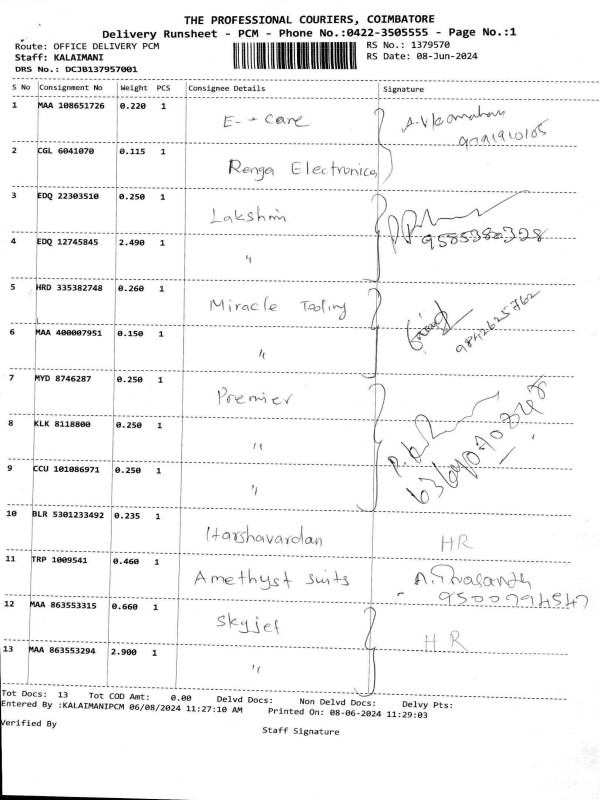 THE PROFESSIONAL COURIERS, COIMBATORE
Delivery Runsheet - PCM - Phone No.:0422-3505555 - Page No.:1
Route: OFFICE DELIVERY PCM RS No.: 1379570
Staff: KALAIMANI RS Date: 08-Jun-2024
DRS No.: DCJB137957001
S No Consignment No Weight PCS Consignee Details Signature
1 MAA 108651726 0.220 1 E-care
9791910105
2 CGL 6041070 0.115 1 Renga Electronics
3 EDQ 22303510 0.250 1 Lakshmi
9585380328
4 EDQ 12745845 2.490 1 "
5 HRD 335382748 0.260 1 Miracle Tooling
9842625762
6 MAA 400007951 0.150 1 "
7 MYD 8746287 0.250 1 Premier
8 KLK 8118800 0.250 1 "
9 CCU 101086971 0.250 1 "
10 BLR 5301233492 0.235 1 Harshavardan HR
11 TRP 1009541 0.460 1 Amethyst suits
9500794547
12 MAA 863553315 0.660 1 Skyjet HR
13 MAA 863553294 2.900 1 "
Tot Docs: 13 Tot COD Amt: 0.00 Delvd Docs: Non Delvd Docs: Delvy Pts:
Entered By :KALAIMANIPCM 06/08/2024 11:27:10 AM Printed On: 08-06-2024 11:29:03
Verified By
Staff Signature